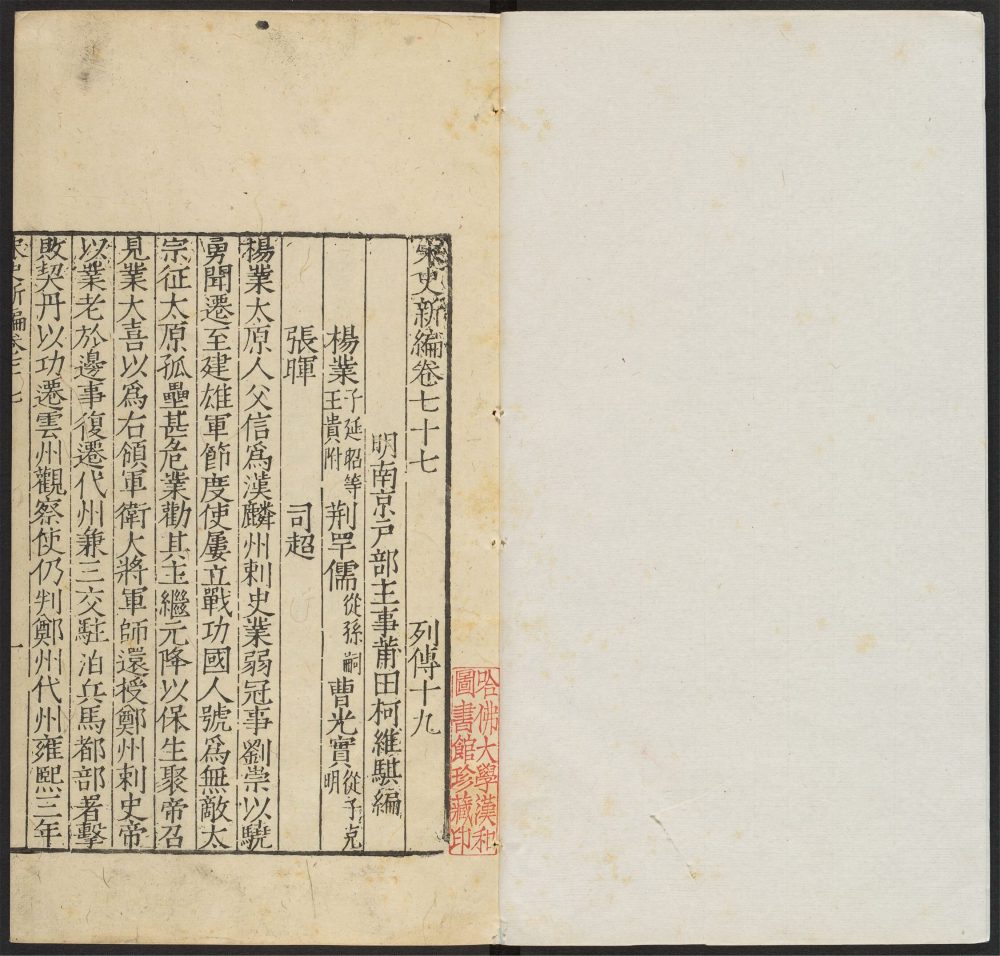 宋史新編卷七十七 列傳十九
明南京戶部主事莆田柯維騏編
楊業子延昭等王貴附 荆罕儒從孫嗣 曹光實從子克明
張暉 司超
楊業太原人父信爲漢麟州刺史業弱冠事劉崇以驍
勇聞遷至建雄軍節度使屢立戰功國人號爲無敵太
宗征太原孤壘甚危業勸其主繼元降以保生聚帝召
見業大喜以爲右領軍衛大將軍師還授鄭州刺史帝
以業老於邊事復遷代州兼三交駐泊兵馬都部署擊
敗契丹以功遷雲州觀察使仍判鄭州代州雍熙三年
宋史新編卷七七 一
哈佛大學漢和
圖書館珍藏印